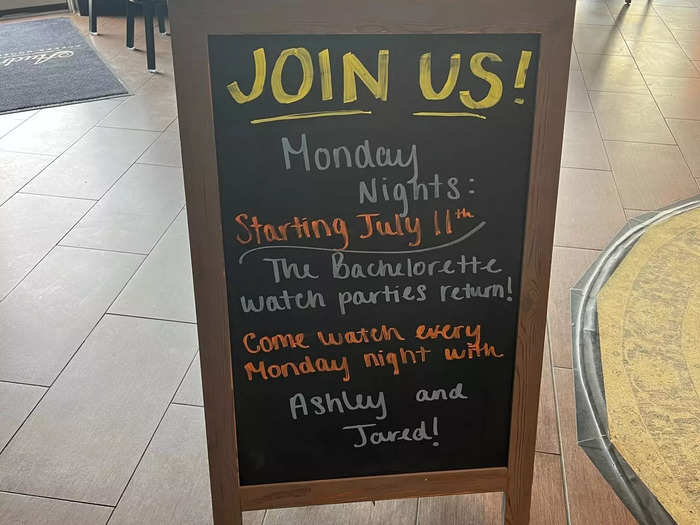 JOIN US!
Monday
Nights:
Starting July 11th
The Bachelorette
watch parties return!
Come watch every
Monday night with
Ashley and
Jared!